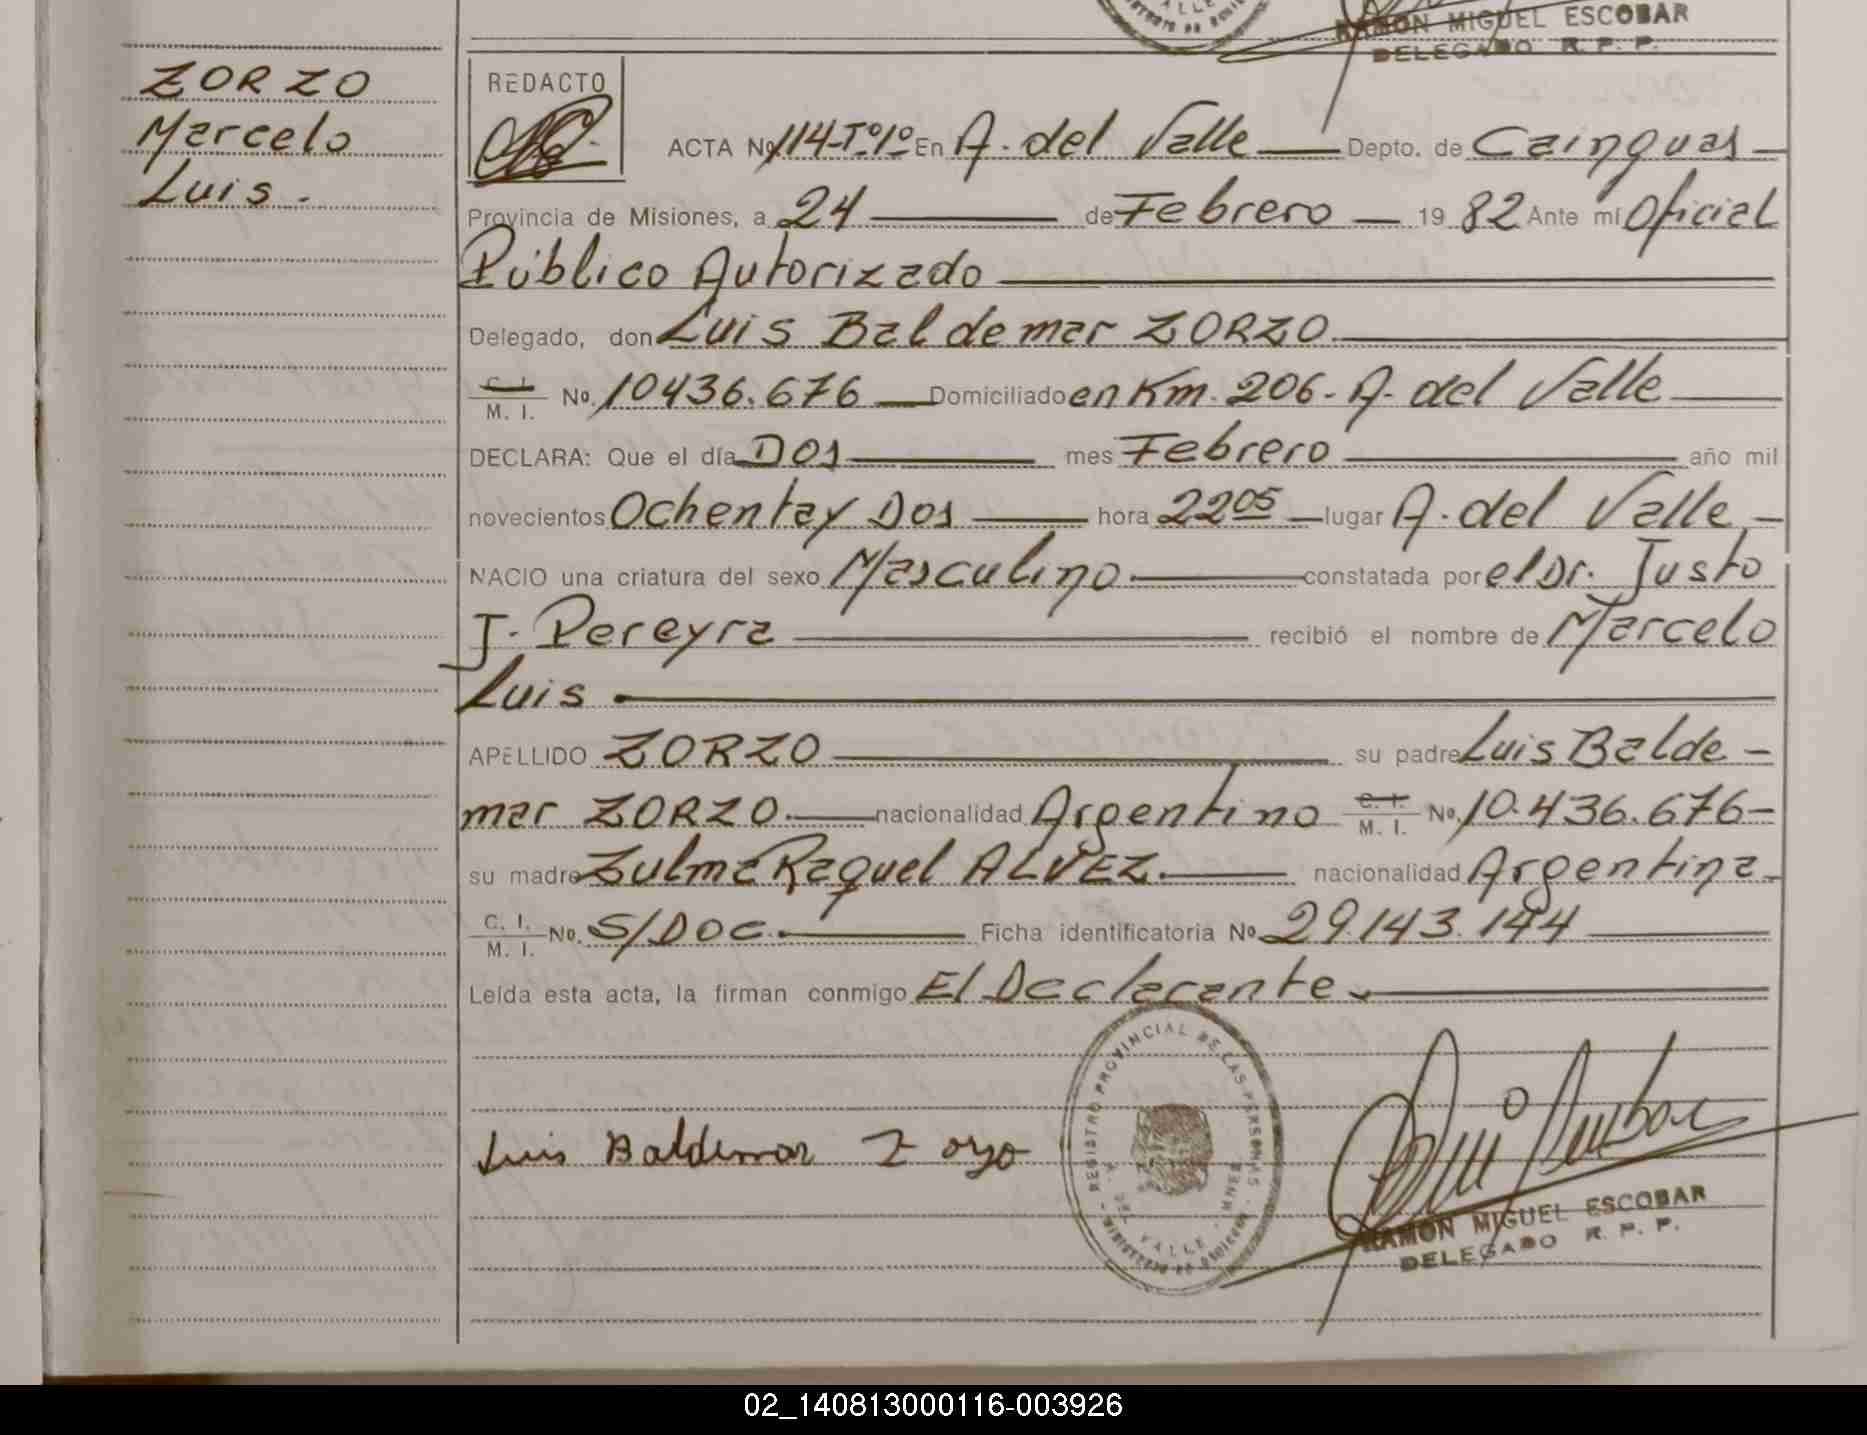 RAMON MIGUEL ESCOBAR
DELEGADO R. P. P.
ZORZO
Marcelo
Luis.
REDACTO
ACTA Nº 114-Tº1º En A. del Valle Depto. de Cainguas
Provincia de Misiones, a 24 de Febrero 19 82 Ante mí Oficial
Público Autorizado
Delegado, don Luis Baldemar ZORZO
C. I.
M. I. No. 10436.676 Domiciliado en Km. 206. A. del Valle
DECLARA: Que el día Dos mes Febrero año mil
novecientos Ochenta y Dos hora 22 05 lugar A. del Valle
NACIO una criatura del sexo Masculino. constatada por el Dr. Justo
J. Pereyra recibió el nombre de Marcelo
Luis
APELLIDO ZORZO su padre Luis Balde-
mar ZORZO. nacionalidad Argentino C. I.
M. I. No. 10.436.676
su madre Zulma Raquel ALVEZ. nacionalidad Argentina
C. I.
M. I. No. S/DOC. Ficha identificatoria No 29.143.144
Leída esta acta, la firman conmigo El Declarante
REGISTRO PROVINCIAL DE LAS PERSONAS
A. DEL VALLE - MNES
Luis Baldemar Zorzo
RAMON MIGUEL ESCOBAR
DELEGADO R. P. P.
02_140813000116-003926